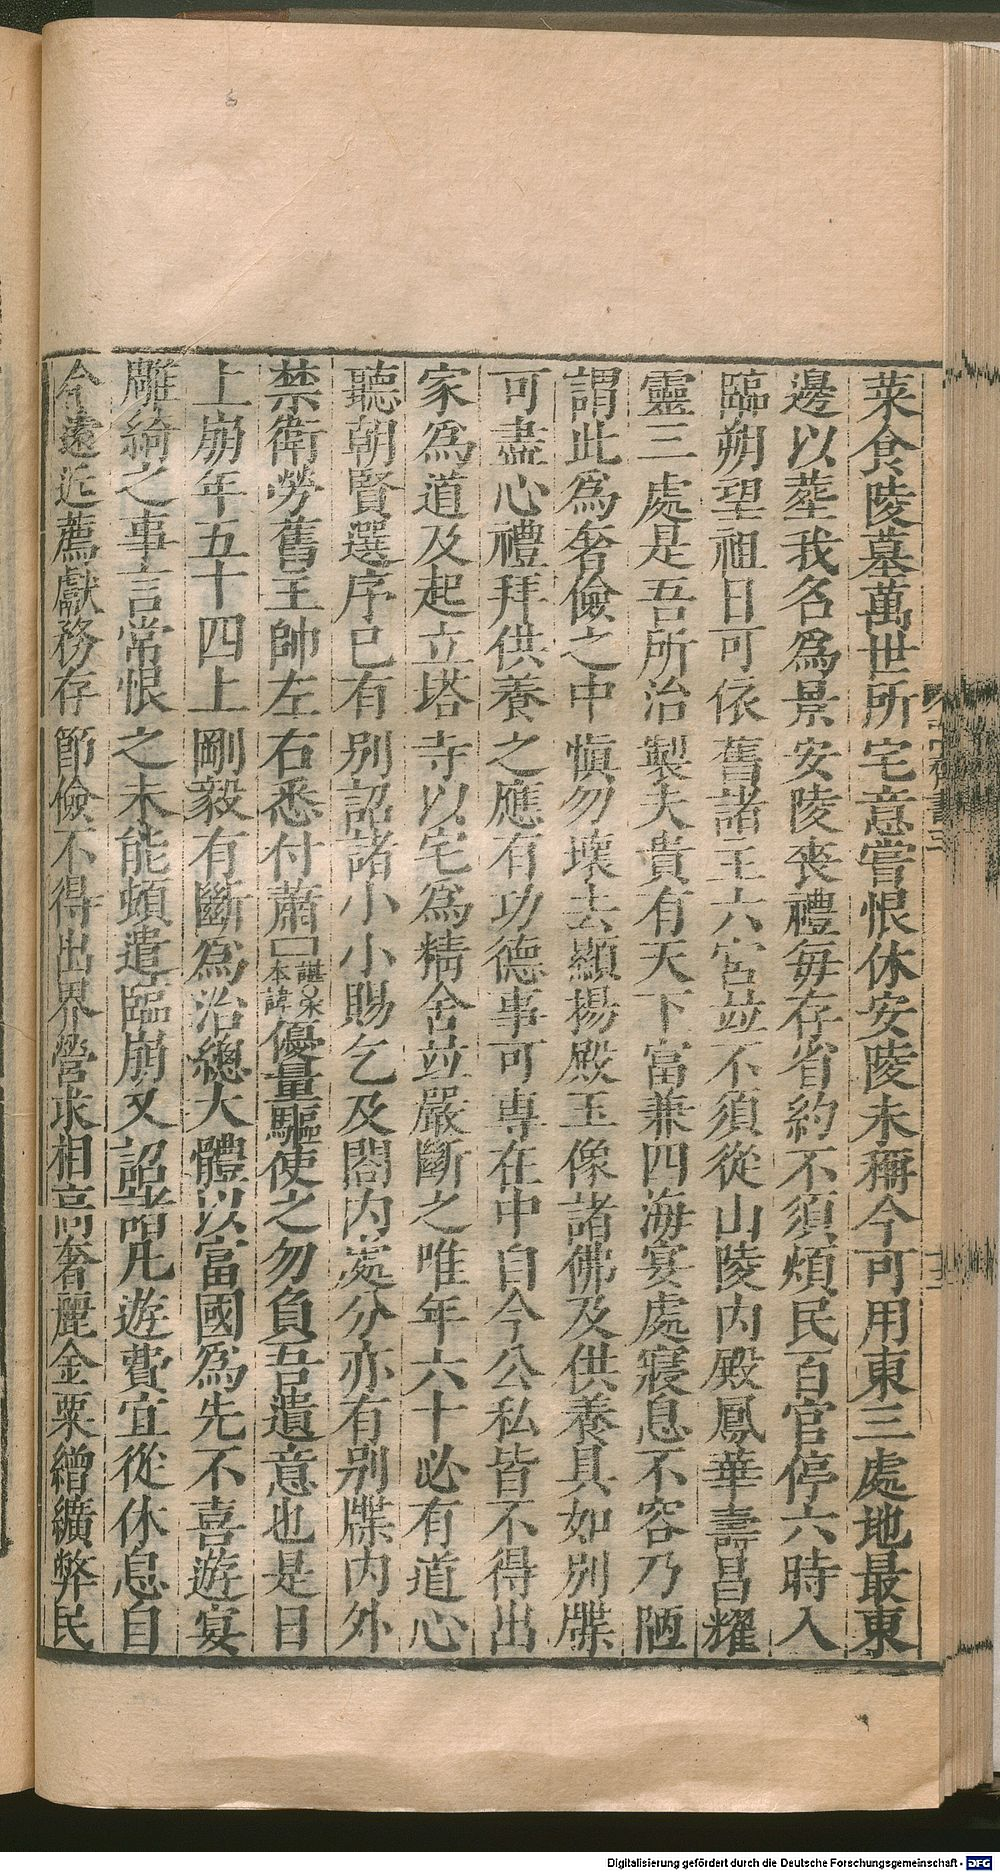 菜食陵墓萬世所宅意嘗恨休安陵未稱今可用東三處地最東
邊以塟我名爲景安陵喪禮每存省約不須煩民百官停六時入
臨朔望祖日可依舊諸王六宮並不須從山陵内殿鳳華壽昌耀
靈三處是吾所治製夫貴有天下富兼四海宴處寢息不容乃陋
謂此爲奢儉之中愼勿壞去顯揚殿玉像諸佛及供養具如別牒
可盡心禮拜供養之應有功德事可専在中自今公私皆不得出
家爲道及起立塔寺以宅爲精舍並嚴斷之唯年六十必有道心
聽朝賢選序已有别詔諸小小賜乞及閤内處分亦有别牒内外
禁衛勞舊主帥左右悉付蕭□諶〇宋本諱優量驅使之勿負吾遺意也是日
上崩年五十四上剛毅有斷爲治總大體以富國爲先不喜遊宴
雕綺之事言常恨之未能頓遣臨崩又詔諸凡遊費宜從休息自
今遠近薦獻務存節儉不得出界營求相高奢麗金粟繒纊弊民
Digitalisierung gefördert durch die Deutsche Forschungsgemeinschaft - DFG